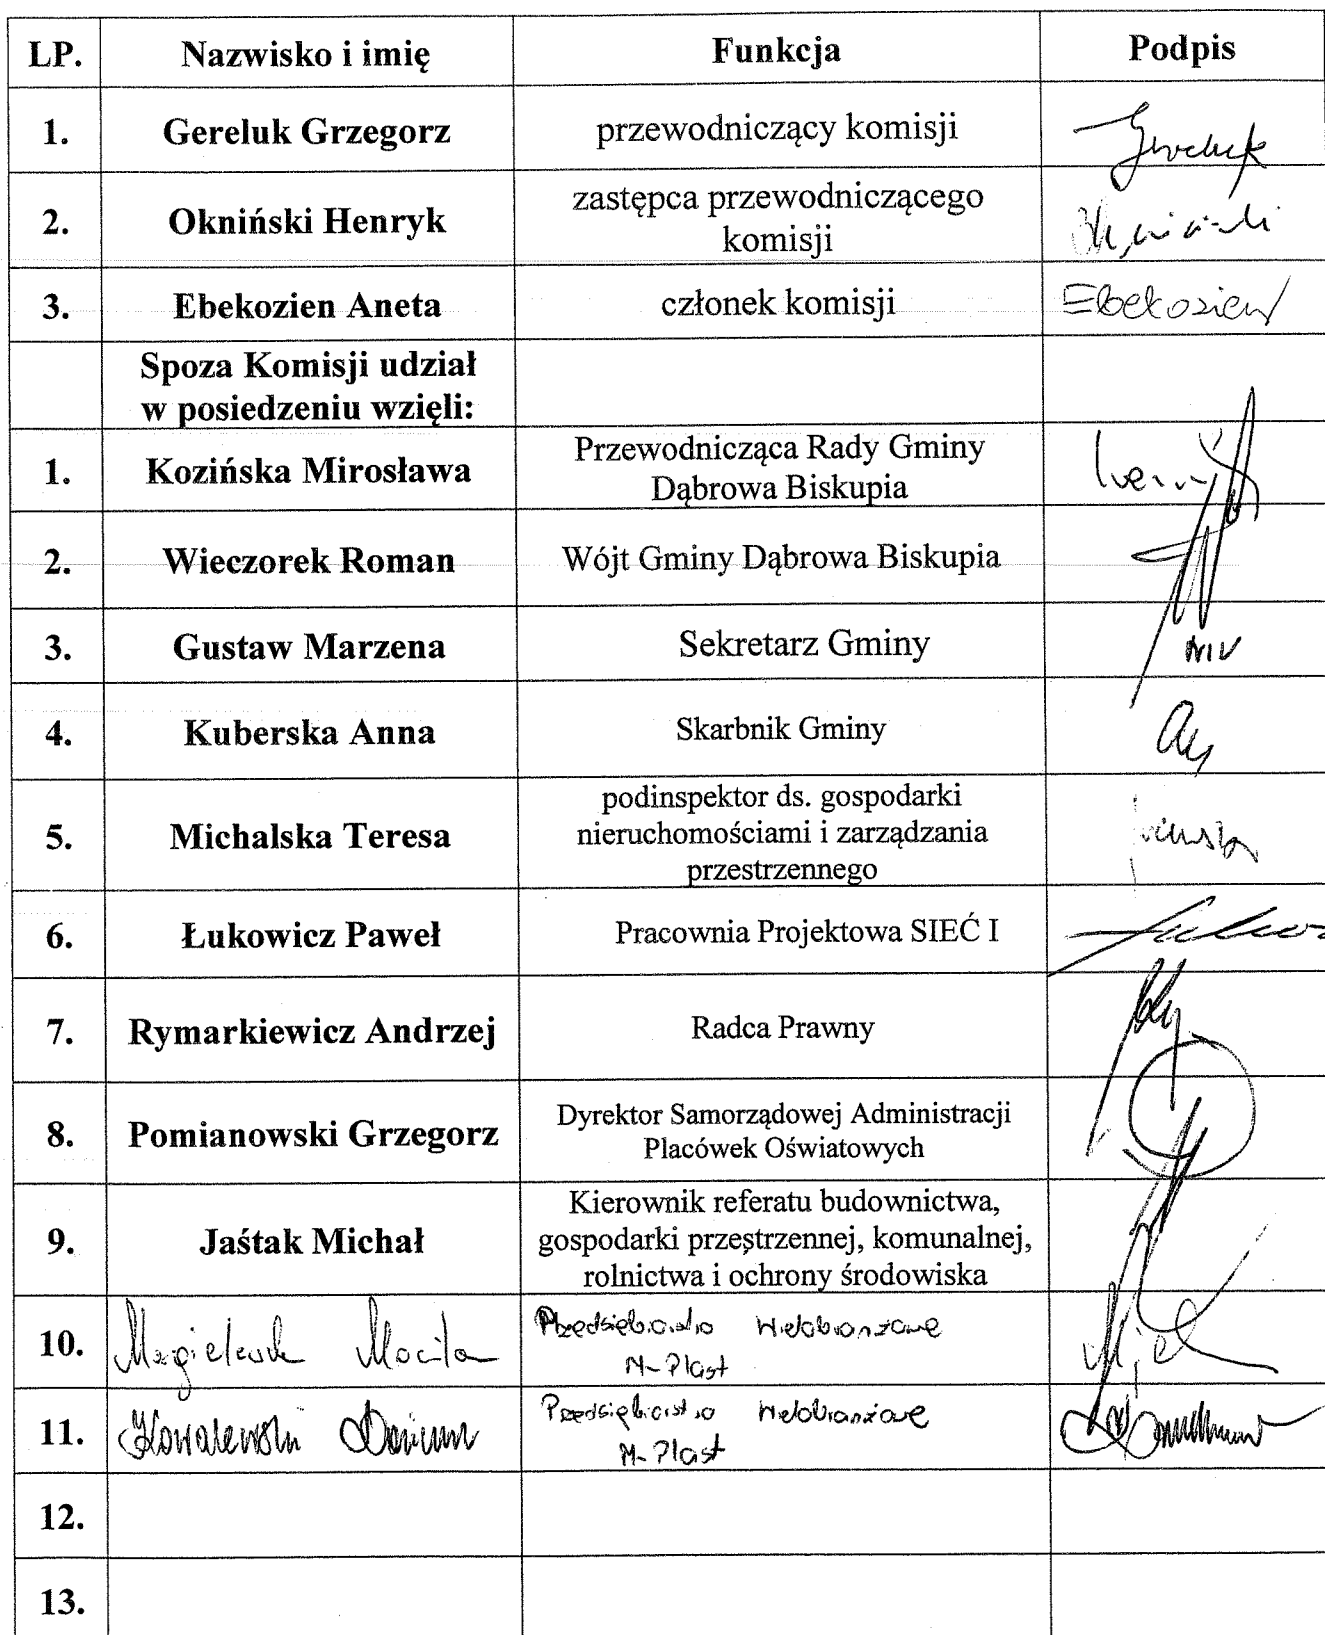 LP. Nazwisko i imię Funkcja Podpis
1. Gereluk Grzegorz przewodniczący komisji
2. Okniński Henryk zastępca przewodniczącego
komisji
3. Ebekozien Aneta członek komisji Ebekozien
Spoza Komisji udział
w posiedzeniu wzięli:
1. Kozińska Mirosława Przewodnicząca Rady Gminy
Dąbrowa Biskupia
2. Wieczorek Roman Wójt Gminy Dąbrowa Biskupia
3. Gustaw Marzena Sekretarz Gminy
4. Kuberska Anna Skarbnik Gminy
5. Michalska Teresa podinspektor ds. gospodarki
nieruchomościami i zarządzania
przestrzennego
6. Łukowicz Paweł Pracownia Projektowa SIEĆ I
7. Rymarkiewicz Andrzej Radca Prawny
8. Pomianowski Grzegorz Dyrektor Samorządowej Administracji
Placówek Oświatowych
9. Jaśtak Michał Kierownik referatu budownictwa,
gospodarki przestrzennej, komunalnej,
rolnictwa i ochrony środowiska
10. Przedsiębiorstwo Wielobranżowe
M-Plast
11. Kowalewski Przedsiębiorstwo Wielobranżowe
M-Plast
12.
13.